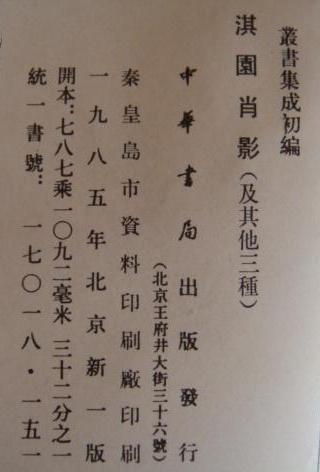 叢書集成初編
淇園肖影（及其他三種）
中華書局出版發行
（北京王府井大街三十六號）
秦皇島市資料印刷廠印刷
一九八五年北京新一版
開本：七八七乘一〇九二毫米 三十二分之一
統一書號：一七〇一八·一五一